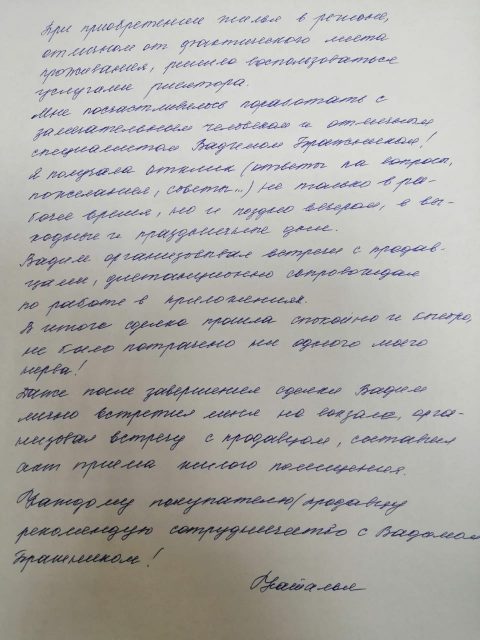 При приобретении жилья в регионе,
отличном от фактического места
проживания, решила воспользоваться
услугами риелтора.
Мне посчастливилось поработать с
замечательным человеком и отличным
специалистом Вадимом Бражником!
Я получала отклик (ответы на вопросы,
пожелания, советы...) не только в ра-
бочее время, но и поздно вечером, в вы-
ходные и праздничные дни.
Вадим организовывал встречи с продав-
цами, дистанционно сопровождал
по работе в приложениях.
В итоге сделка прошла спокойно и быстро,
не было потрачено ни одного моего
нерва!
Даже после завершения сделки Вадим
лично встретил меня на вокзале, орга-
низовал встречу с продавцом, составил
акт приема жилого помещения.
Каждому покупателю/продавцу
рекомендую сотрудничество с Вадимом
Бражником!
Наталья